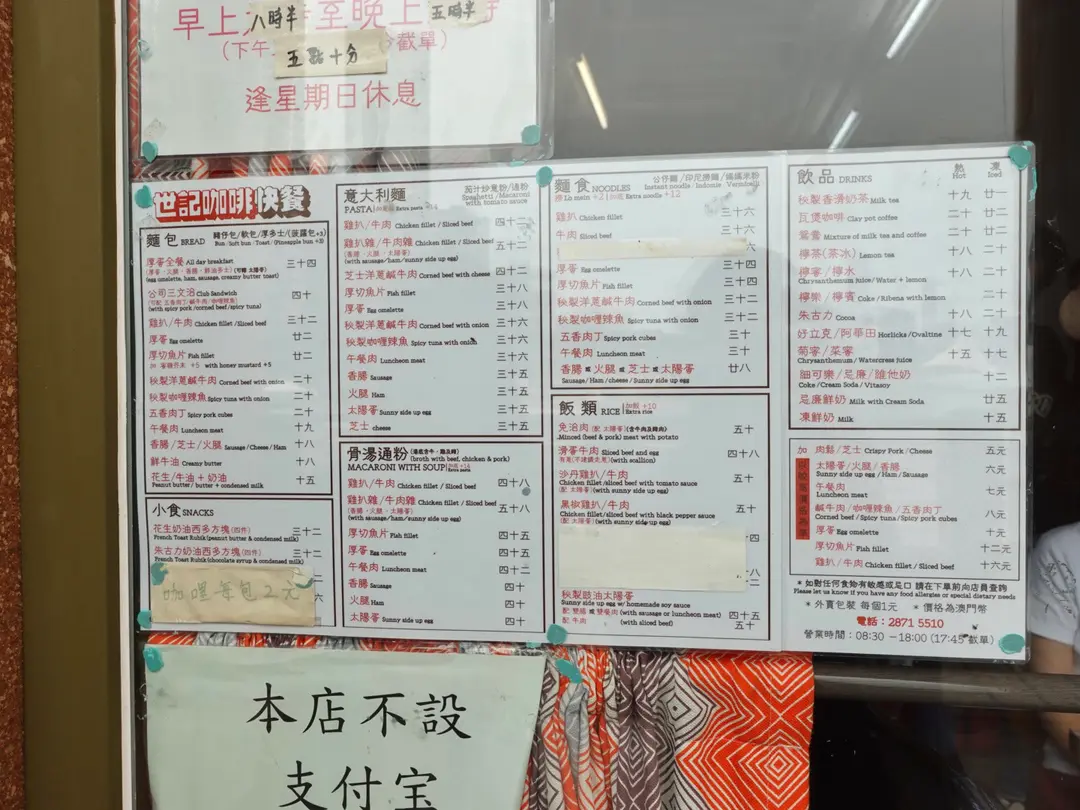 早上八時半至晚上五時半
(下午五點十分截單)
逢星期日休息
世記咖啡快餐
麵包 BREAD 豬仔包/軟包/厚多士/(菠蘿包+3)
Bun / Soft bun / Toast / (Pineapple bun +3)
厚蛋全餐 All day breakfast 三十四
(egg omelette, ham, sausage, creamy butter toast)
公司三文治 Club Sandwich 四十
(with spicy pork /corned beef/spicy tuna)
雞扒/牛肉 Chicken fillet/Sliced beef 三十二
厚蛋 Egg omelette 廿二
厚切魚片 Fish fillet 廿二
加 蜜糖芥末 +5 with honey mustard +5
秘製洋蔥鹹牛肉 Corned beef with onion 二十
秘製咖喱辣魚 Spicy tuna with onion 二十
五香肉丁 Spicy pork cubes 二十
午餐肉 Luncheon meat 十九
香腸/芝士/火腿 Sausage/Cheese/Ham 十八
鮮牛油 Creamy butter 十八
花生/牛油+奶油 十五
Peanut butter/ butter + condensed milk
小食 SNACKS
花生奶油西多方塊(四件) 三十二
French Toast Rubik(peanut butter & condensed milk)
朱古力奶油西多方塊(四件) 三十二
French Toast Rubik(chocolate syrup & condensed milk)
咖喱每包2元
意大利麵 茄汁炒意粉/通粉
PASTA Extra pasta Spaghetti/Macaroni
with tomato sauce
雞扒/牛肉 Chicken fillet / Sliced beef 四十二
雞扒雜/牛肉雜 Chicken fillet / Sliced beef 五十二
(香腸、火腿、太陽蛋)
(with sausage/ham/sunny side up egg)
芝士洋蔥鹹牛肉 Corned beef with cheese 四十二
厚切魚片 Fish fillet 三十八
厚蛋 Egg omelette 三十八
秘製洋蔥鹹牛肉 Corned beef with onion 三十六
秘製咖喱辣魚 Spicy tuna with onion 三十六
午餐肉 Luncheon meat 三十六
香腸 Sausage 三十五
火腿 Ham 三十五
太陽蛋 Sunny side up egg 三十五
芝士 cheese 三十五
骨湯通粉 (湯底含牛、雞及豬)
(broth with beef, chicken & pork)
MACARONI WITH SOUP
雞扒/牛肉 Chicken fillet / Sliced beef 四十八
雞扒雜/牛肉雜 Chicken fillet / Sliced beef 五十八
(香腸、火腿、太陽蛋)
(with sausage/ham/sunny side up egg)
厚切魚片 Fish fillet 四十五
厚蛋 Egg omelette 四十五
午餐肉 Luncheon meat 四十二
香腸 Sausage 四十
火腿 Ham 四十
太陽蛋 Sunny side up egg 四十
麵食 NOODLES 公仔麵/印尼撈麵/媽媽米粉
Instant noodle / Indomie / Vermicelli
撈 Lo mein +2 Extra noodle +12
雞扒 Chicken fillet 三十六
牛肉 Sliced beef 三十六
六
厚蛋 Egg omelette 三十四
厚切魚片 Fish fillet 三十四
秘製洋蔥鹹牛肉 Corned beef with onion 三十二
秘製咖喱辣魚 Spicy tuna with onion 三十二
五香肉丁 Spicy pork cubes 三十
午餐肉 Luncheon meat 三十
香腸 或 火腿 或 芝士 或 太陽蛋 廿八
Sausage / Ham / cheese / Sunny side up egg
飯類 RICE 加飯 +10
Extra rice
免治肉 (配 太陽蛋) (含牛肉及豬肉) 五十
Minced (beef & pork) meat with potato
滑蛋牛肉 Sliced beef and egg 四十八
(with scallion)
沙丹雞扒/牛肉 五十
Chicken fillet /sliced beef with tomato sauce
(配 太陽蛋) (with sunny side up egg)
黑椒雞扒/牛肉 五十
Chicken fillet/sliced beef with black pepper sauce
(配 太陽蛋) (with sunny side up egg)
四
八
秘製豉油太陽蛋
Sunny side up egg w/ homemade soy sauce
配 雙腸 或 雙餐肉 (with sausage or luncheon meat) 四十五
配 牛肉 (with sliced beef) 五十
飲品 DRINKS 熱 Hot 凍 Iced
秘製香滑奶茶 Milk tea 十九 廿一
瓦煲咖啡 Clay pot coffee 二十 廿二
鴛鴦 Mixture of milk tea and coffee 二十 廿二
檸茶(茶冰) Lemon tea 十八 二十
檸蜜/檸水 十八 二十
Chrysanthemum juice/Water + lemon
檸樂/檸賓 Coke / Ribena with lemon 二十
朱古力 Cocoa 十八 二十
好立克/阿華田 Horlicks/Ovaltine 十七 十九
菊蜜/菜蜜 十五 十七
Chrysanthemum / Watercress juice
細可樂/忌廉/維他奶 十二
Coke / Cream Soda / Vitasoy
忌廉鮮奶 Milk with Cream Soda 廿五
凍鮮奶 Milk 十五
加 肉鬆/芝士 Crispy Pork / Cheese 五元
太陽蛋/火腿/香腸 六元
Sunny side up egg / Ham / Sausage
午餐肉 七元
Luncheon meat
鹹牛肉/咖喱辣魚/五香肉丁 八元
Corned beef / Spicy tuna/Spicy pork cubes
厚蛋 Egg omelette 十元
厚切魚片 Fish fillet 十二元
雞扒/牛肉 Chicken fillet / Sliced beef 十六元
*如對任何食物有敏感或忌口 請在下單前向店員查詢
Please let us know if you have any food allergies or special dietary needs
*外賣包裝 每個1元 *價格為澳門幣
電話：2871 5510
營業時間：08:30 －18:00 (17:45 截單)
本店不設
支付宝